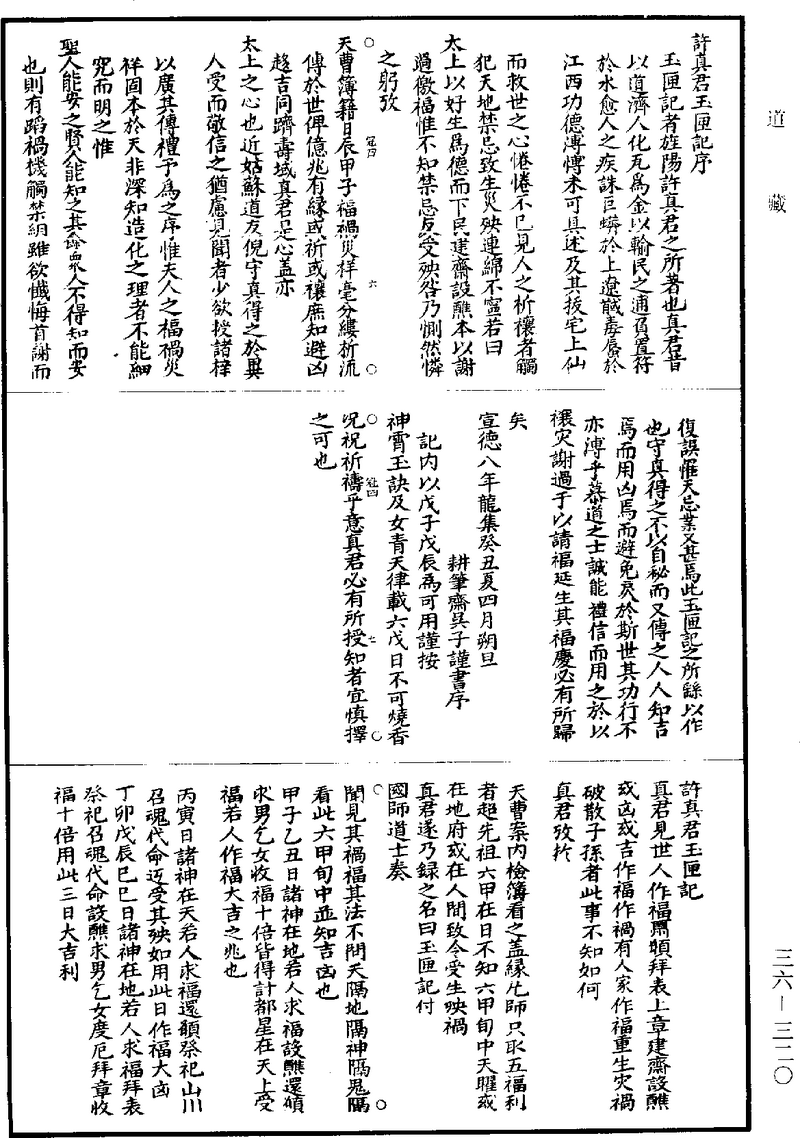 道藏
許真君玉匣記序
玉匣記者旌陽許真君之所著也真君昔
以道濟人化瓦為金以輸民之逋負置符
於水愈人之疾誅巨蟒於上遼馘毒蜃於
江西功德溥慱未可具述及其拔宅上仙
而救世之心惓惓不已見人之祈禳者觸
犯天地禁忌致生災殃連綿不寧若曰
太上以好生為德而下民建齋設醮本以謝
過徼福惟不知禁忌反受殃咎乃惻然憐
之躬攷
天曹簿籍日辰甲子福禍災祥毫分縷析流
傳於世俾億兆有緣或祈或禳庶知避凶
趍吉同躋壽域真君是心盖亦
太上之心也近姑蘇道友倪守真得之於異
人受而敬信之猶慮見聞者少欲授諸梓
以廣其傳禮予為之序惟夫人之福禍災
祥固本於天非深知造化之理者不能細
究而明之惟
聖人能安之賢人能知之其餘眾人不得知而安
也則有蹈禍機觸禁網雖欲懺悔首謝而
復誤罹天忌業又甚焉此玉匣記之所繇以作
也守真得之不以自秘而又傳之人人知吉
焉而用凶焉而避免灾於斯世其功行不
亦溥乎慕道之士誠能禮信而用之於以
禳灾謝過于以請福延生其福慶必有所歸
矣
宣德八年龍集癸丑夏四月朔旦
耕筆齋吳子謹書序
記内以戊子戊辰為可用謹按
神霄玉訣及女青天律載六戊日不可燒香
呪祝祈禱乎意真君必有所授知者宜慎擇
之可也
許真君玉匣記
真君見世人作福鬻願拜表上章建齋設醮
或凶或吉作福作禍有人家作福重生灾禍
破散子孫者此事不知如何
真君攷於
天曹案内檢簿看之盖緣凡師只取五福利
者起先祖六甲在日不知六甲旬中天曜或
在地府或在人間致令受生殃禍
真君遂乃録之名曰玉匣記付
國師道士奏
聞見其禍福其法不問天隔地隔神隔鬼隔
看此六甲旬中並知吉凶也
甲子乙丑日諸神在地若人求福設醮還願
求男乞女收福十倍皆得計都星在天上受
福若人作福大吉之兆也
丙寅日諸神在天若人求福還願祭祀山川
召魂代命迈受其殃如用此日作福大凶
丁卯戊辰巳巳日諸神在地若人求福拜表
祭祀召魂代命設醮求男乞女度厄拜章收
福十倍用此三日大吉利
三六—三二〇